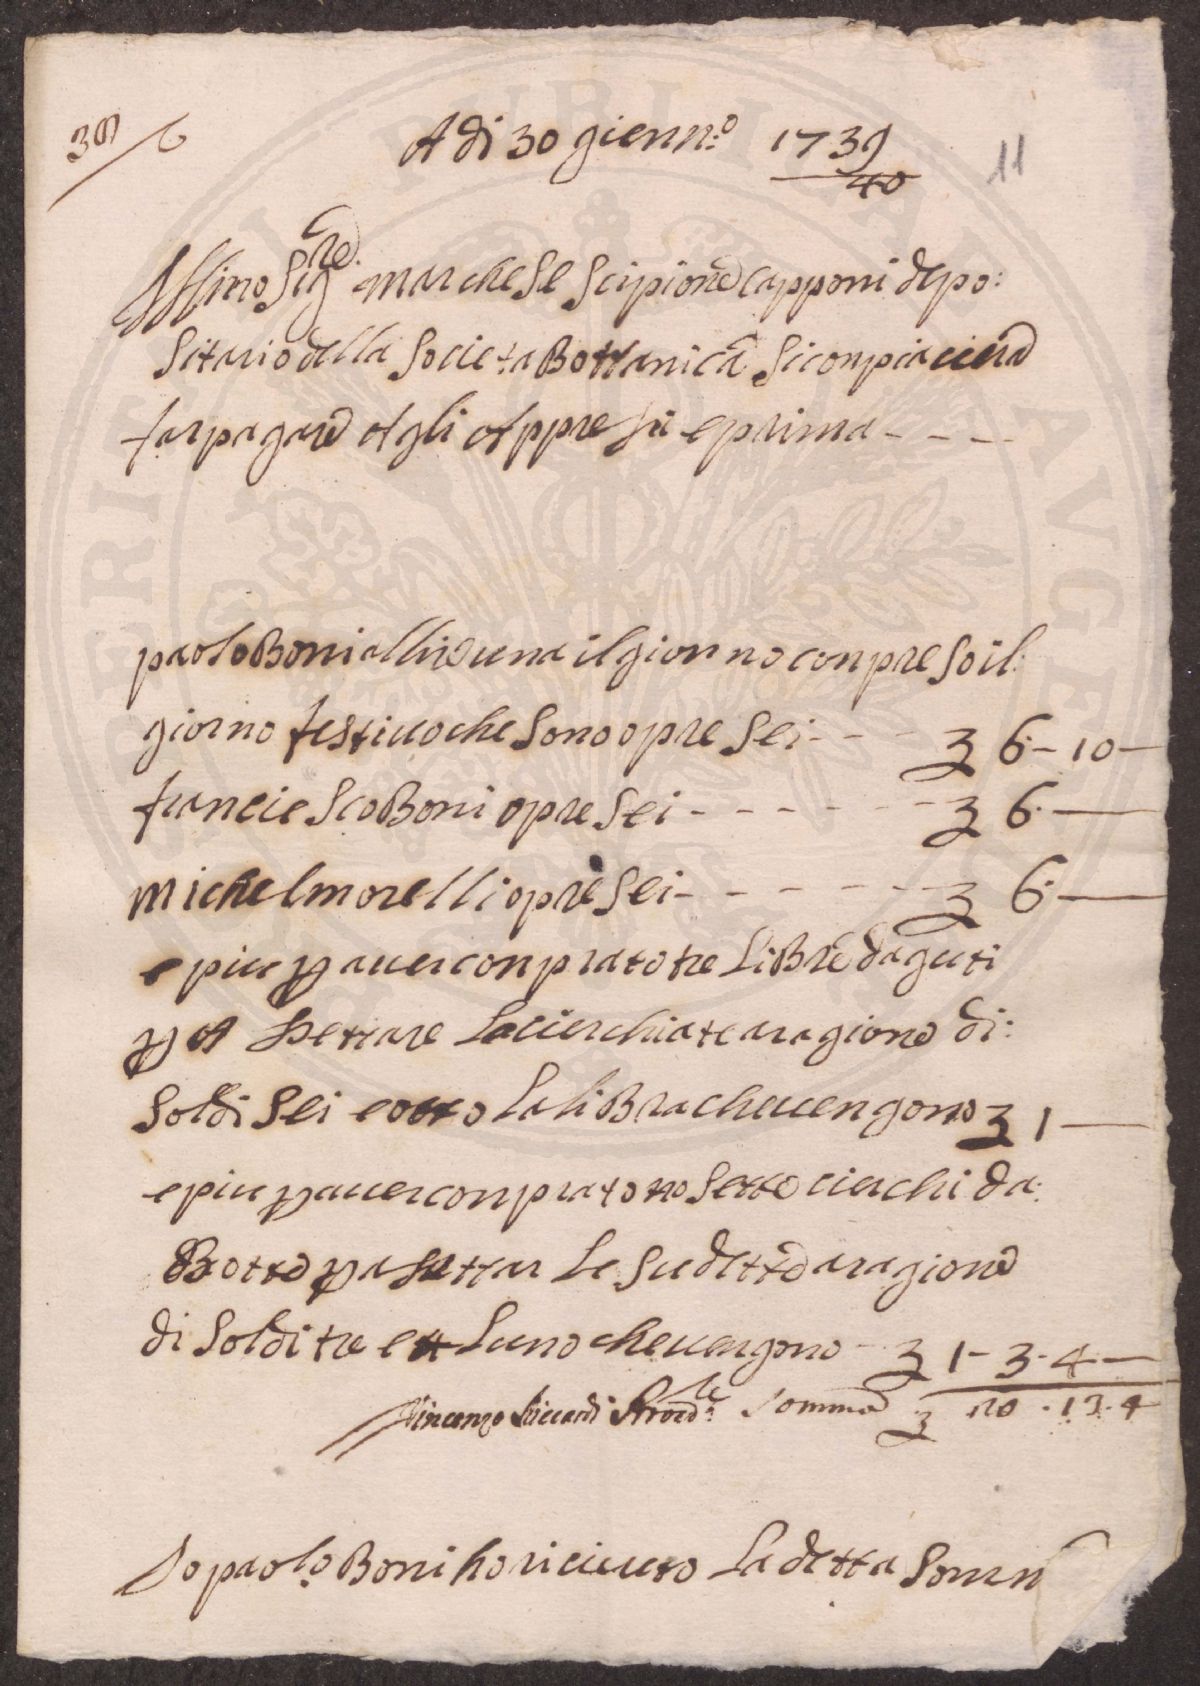 A di 30 gienn:o 1739
40
11
Sig:re marchese Scipione capponi depo:
sitario della Societa Bottanica si conpiacierà
far pagare Agli Appresu e prima - - - -
paolo Boni alire una il giorno conpreso il:
giorno festiuo che sono opre sei - - - 6 - 10 -
franciesco Boni opre sei - - - - - - - 6 -
michel morelli opre sei - - - - - - 6 -
e piu p auer conprato tre Libre daguti
p A settare Le cierchiate aragione di:
soldi sei e otto La liBra che uengono 1 -
e piu p auer conprato no sette cierchi da:
Botte p a settar Le sudette aragione
di soldi tre e 4 Luno che uengono - 1 - 3 - 4 -
Vincenzo Riccardi Proved:re Somma 20 . 13 . 4
Io paolo Boni ho riceuuto La detta Somm